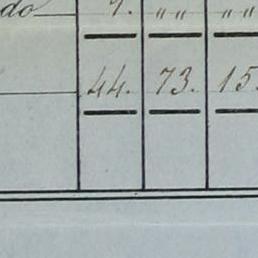 do 9. " " " "
44. 73. 15.